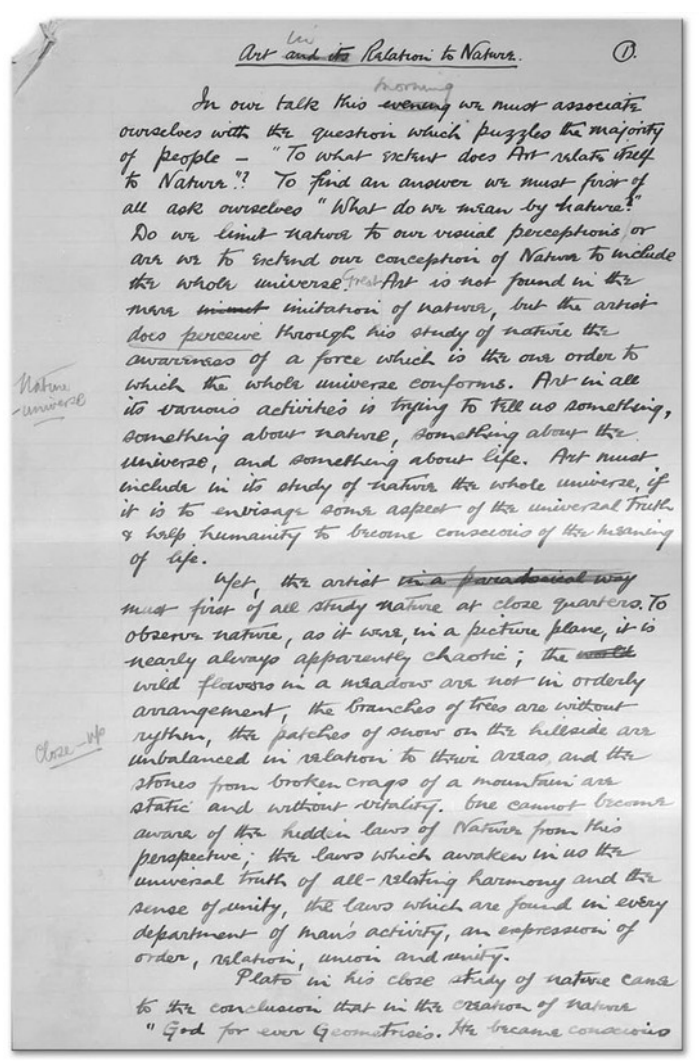 Art in and its Relation to Nature. 1.
In our talk this evening morning we must associate
ourselves with the question which puzzles the majority
of people – "To what extent does Art relate itself
to Nature"? To find an answer we must first of
all ask ourselves "What do we mean by nature?"
Do we limit nature to our visual perceptions, or
are we to extend our conception of Nature to include
the whole universe? Great Art is not found in the
mere imitation of nature, but the artist
does perceive through his study of nature the
awareness of a force which is the one order to
Nature
– universe
which the whole universe conforms. Art in all
its various activities is trying to tell us something,
something about nature, something about the
universe, and something about life. Art must
include in its study of nature the whole universe, if
it is to envisage some aspect of the universal Truth
& help humanity to become conscious of the meaning
of life.
Yet, the artist in a paradoxical way
must first of all study nature at close quarters. To
observe nature, as it were, in a picture plane, it is
nearly always apparently chaotic; the world
wild flowers in a meadow are not in orderly
arrangement, the branches of trees are without
Close-up
rythm, the patches of snow on the hillside are
unbalanced in relation to their areas, and the
stones from broken crags of a mountain are
static and without vitality. One cannot become
aware of the hidden laws of Nature from this
perspective; the laws which awaken in us the
universal truth of all-relating harmony and the
sense of unity, the laws which are found in every
department of man's activity, an expression of
order, relation, union and unity.
Plato in his close study of nature came
to the conclusion that in the creation of nature
"God for ever Geometrisis. He became conscious